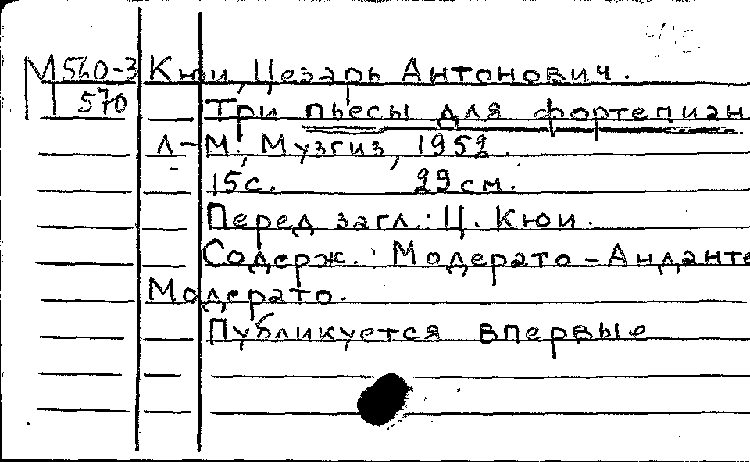 М 540-3 Кюи, Цезарь Антонович.
570 Три пьесы для фортепиан
Л-М., Музгиз, 1952.
15с. 29см.
Перед загл.: Ц. Кюи.
Содерж.: Модерато – Анданте
Модерато.
Публикуется впервые